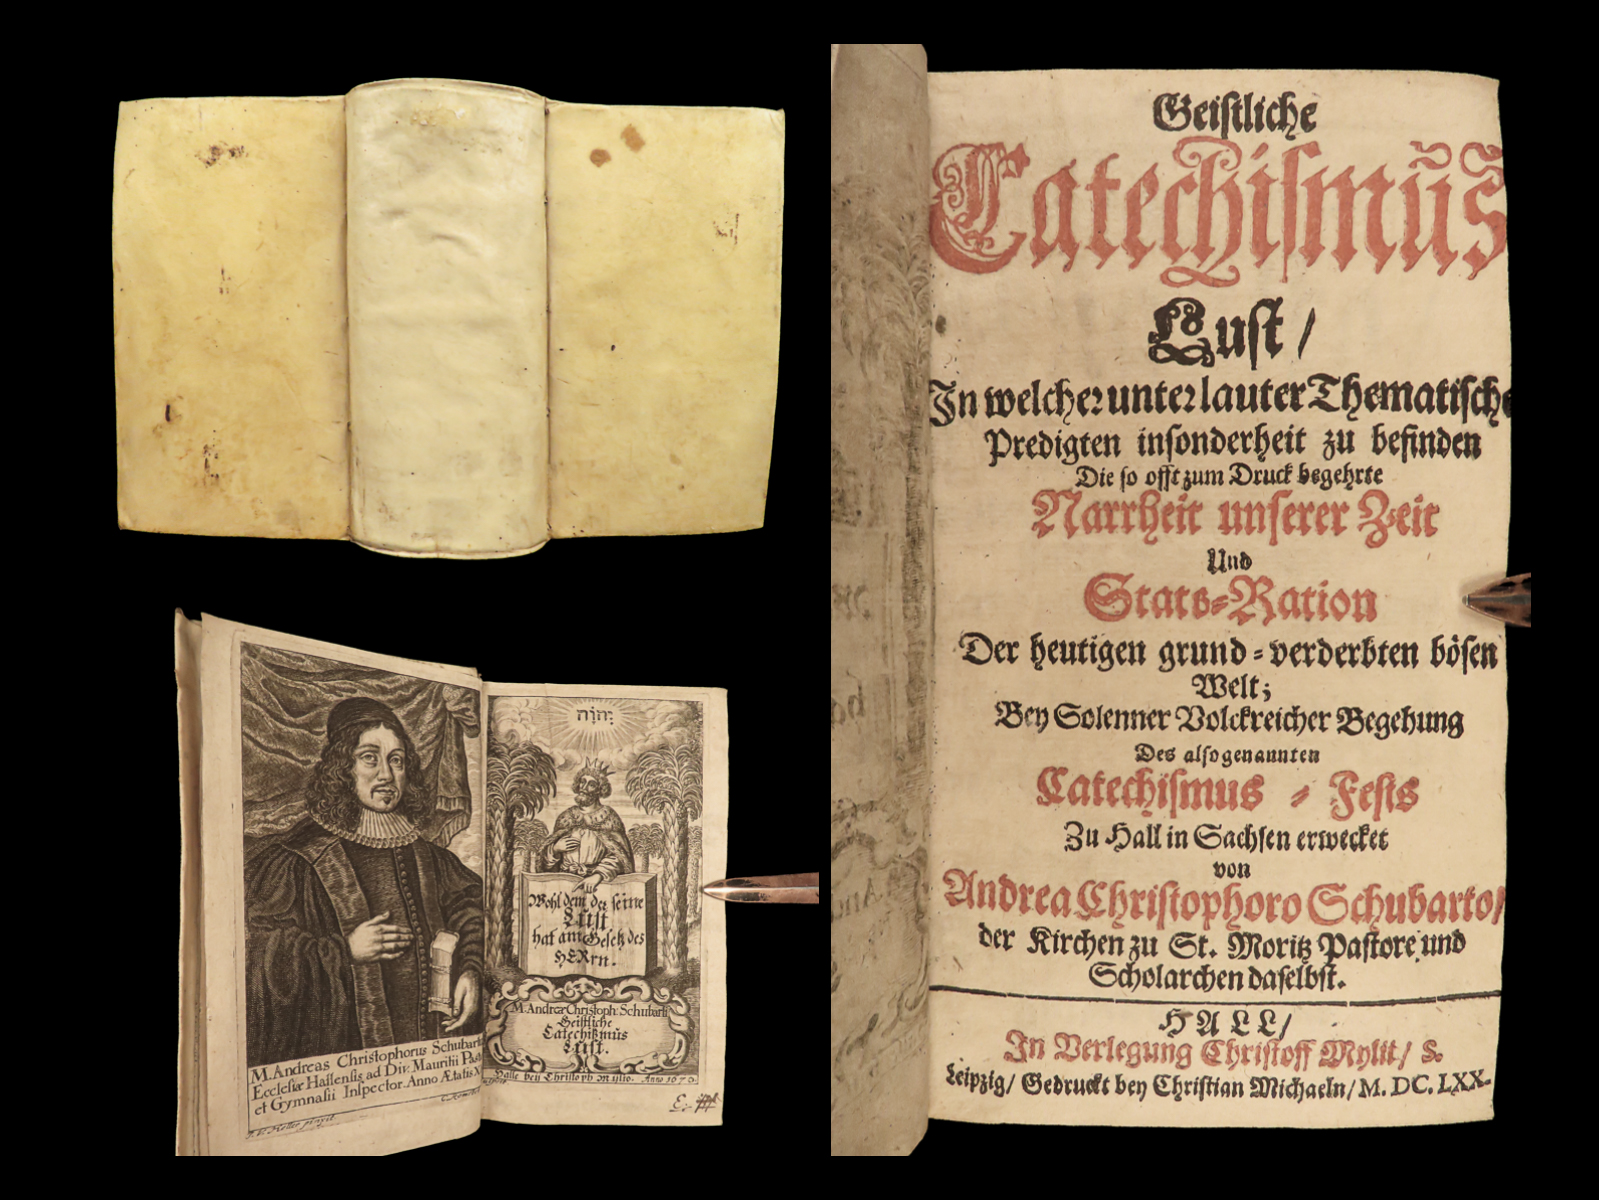 M. Andreas Christophorus Schubart
Ecclesiæ Hallensis ad Div. Mauritii Past
et Gymnasii Inspector. Anno Ætatis X
pinxit
יהוה
Wohl dem der seine
Lust
hat am Gesetz des
HERrn.
M. Andreæ Christoph: Schubarti
Geistliche
Catechismus
Lust.
Halle bey Christoph Mylio. Anno 1670
E.
Geistliche
Catechismus
Lust /
In welcher unter lauter Thematische
Predigten insonderheit zu befinden
Die so offt zum Druck begehrte
Narrheit unserer Zeit
Und
Stats-Ration
Der heutigen grund-verderbten bösen
Welt;
Bey Solenner Volckreicher Begehung
Des alsogenannten
Catechismus - Fests
Zu Hall in Sachsen erwecket
von
Andrea Christophoro Schubarto/
der Kirchen zu St. Moritz Pastore und
Scholarchen daselbst.
HALL/
In Verlegung Christoff Mylii/ S.
Leipzig/ Gedruckt bey Christian Michaeln/ M. DC. LXX.